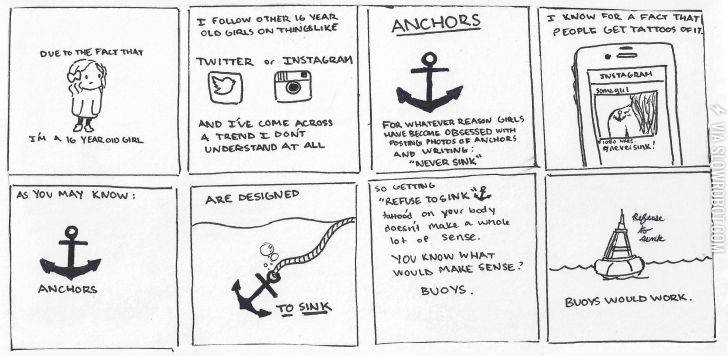 DUE TO THE FACT THAT
I'M A 16 YEAR OLD GIRL
I FOLLOW OTHER 16 YEAR
OLD GIRLS ON THINGS LIKE
TWITTER or INSTAGRAM
AND I'VE COME ACROSS
A TREND I DON'T
UNDERSTAND AT ALL
ANCHORS
FOR WHATEVER REASON GIRLS
HAVE BECOME OBSESSED WITH
POSTING PHOTOS OF ANCHORS
AND WRITING:
"NEVER SINK"
I KNOW FOR A FACT THAT
PEOPLE GET TATTOOS OF IT.
INSTAGRAM
somegirl
likes
#neversink!
AS YOU MAY KNOW:
ANCHORS
ARE DESIGNED
TO SINK
SO GETTING
"REFUSE TO SINK"
tattoo'd on your body
doesn't make a whole
lot of sense.
YOU KNOW WHAT
WOULD MAKE SENSE?
BUOYS.
Refuse
to
sink
BUOYS WOULD WORK.
VIA SLOWROBOT.COM